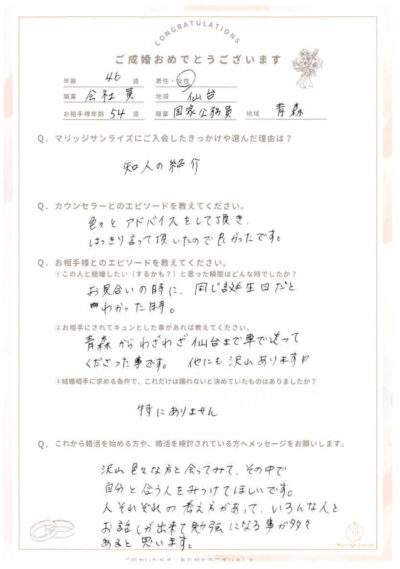 CONGRATULATIONS
ご成婚おめでとうございます
年齢 46 歳 男性・女性
職業 会社員 地域 仙台
お相手様年齢 54 歳 職業 国家公務員 地域 青森
Q. マリッジサンライズにご入会したきっかけや選んだ理由は？
知人の紹介
Q. カウンセラーとのエピソードを教えてください。
色々とアドバイスをして頂き、
はっきり言って頂いたので良かったです。
Q. お相手様とのエピソードを教えてください。
①この人と結婚したい（するかも？）と思った瞬間はどんな時でしたか？
お見合いの時に、同じ誕生日だと
わかった時。
②お相手にされてキュンとした事があれば教えてください。
青森からわざわざ仙台まで車で送って
くださった事です。 他にも沢山あります♡
③結婚相手に求める条件で、これだけは譲れないと決めていたものはありましたか？
特にありません
Q. これから婚活を始める方や、婚活を検討されている方へメッセージをお願いします。
沢山色々な方と会ってみて、その中で
自分と合う人をみつけてほしいです。
人それぞれの考え方があって、いろんな人と
お話しが出来て勉強になる事が多々
あると思います。